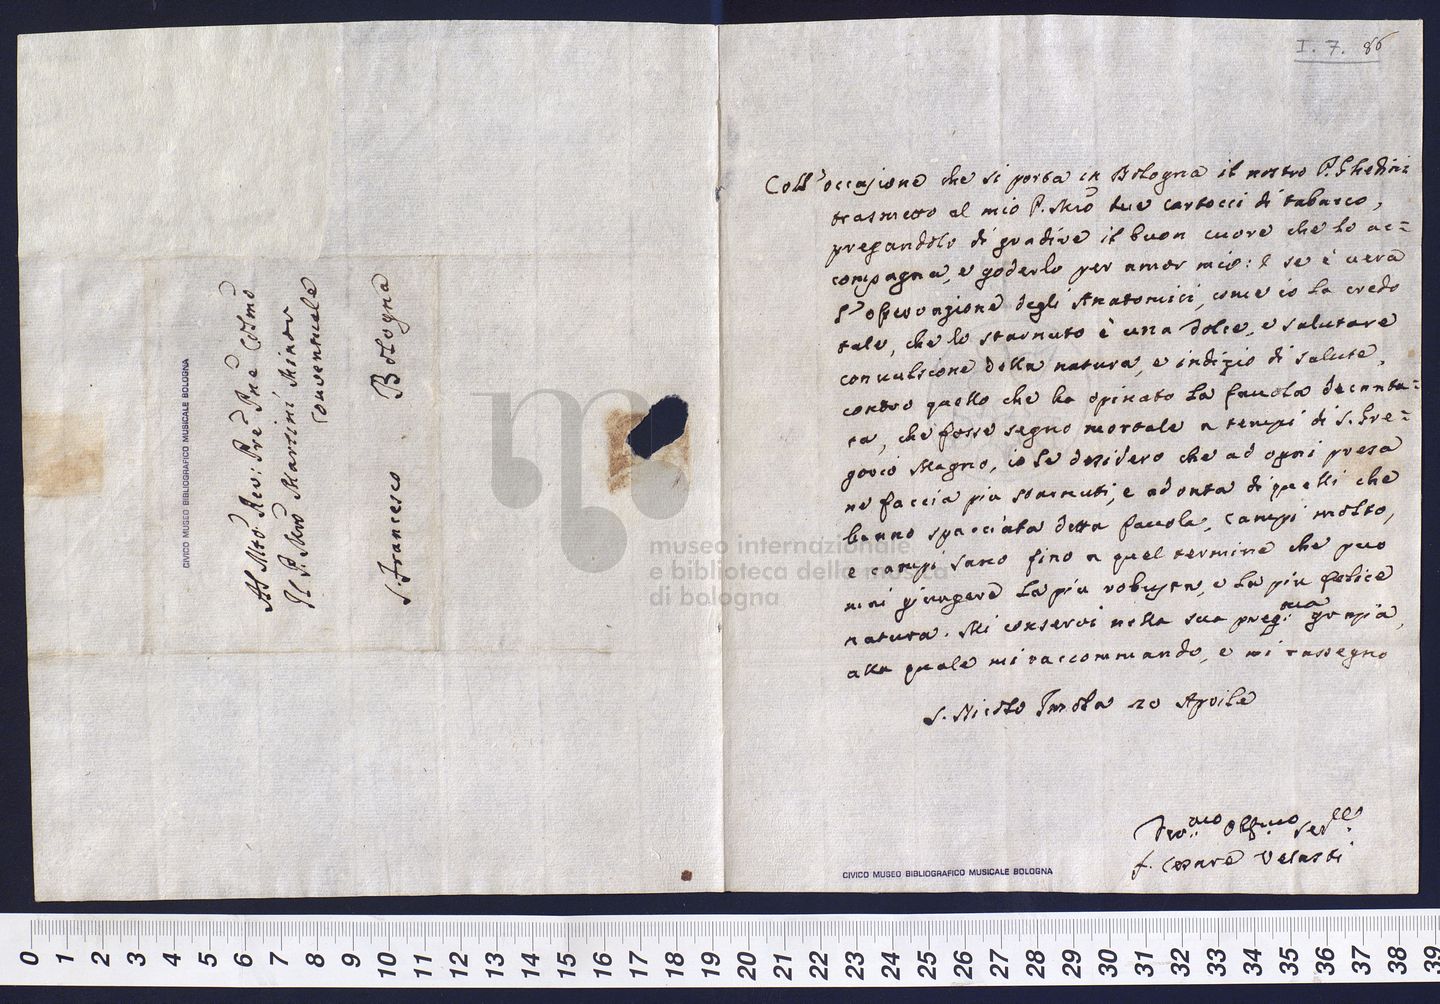 I. 7. 86
Coll'occasione che si porta in Bologna il nostro P. Ghedini
trasmetto al mio P. Mro due cartocci di tabacco,
pregandolo di gradire il buon cuore che lo ac=
compagna, e goderlo per amor mio: E se è vera
l'osservazione degli Anatomici, come io la credo
tale, che lo starnuto è una dolce, e salutare
convulsione della natura, e indizio di salute,
contro quello che ha opinato la favola decanta=
ta, che fosse segno mortale a tempi di S. Gre=
gorio Magno, io le desidero che ad ogni presa
ne faccia più starnuti, e ad onta di quelli che
hanno spacciata detta favola, campi molto,
e campi sano fino a quel termine che può
mai giungere la più robusta, e la più felice
natura. Mi conservi nella sua preg.ma grazia,
alla quale mi raccommando, e mi rassegno
S. Nicolo Imola 20 Aprile
Devmo Obbmo
f. Cesare
Al Mto Rev: Pre Pne Colmo
Il P. Mro Martini Minor
Conventuale
S. Francesco Bologna
CIVICO MUSEO BIBLIOGRAFICO MUSICALE BOLOGNA
CIVICO MUSEO BIBLIOGRAFICO MUSICALE BOLOGNA
museo internazionale
e biblioteca della musica
di bologna
0 1 2 3 4 5 6 7 8 9 10 11 12 13 14 15 16 17 18 19 20 21 22 23 24 25 26 27 28 29 30 31 32 33 34 35 36 37 38 39